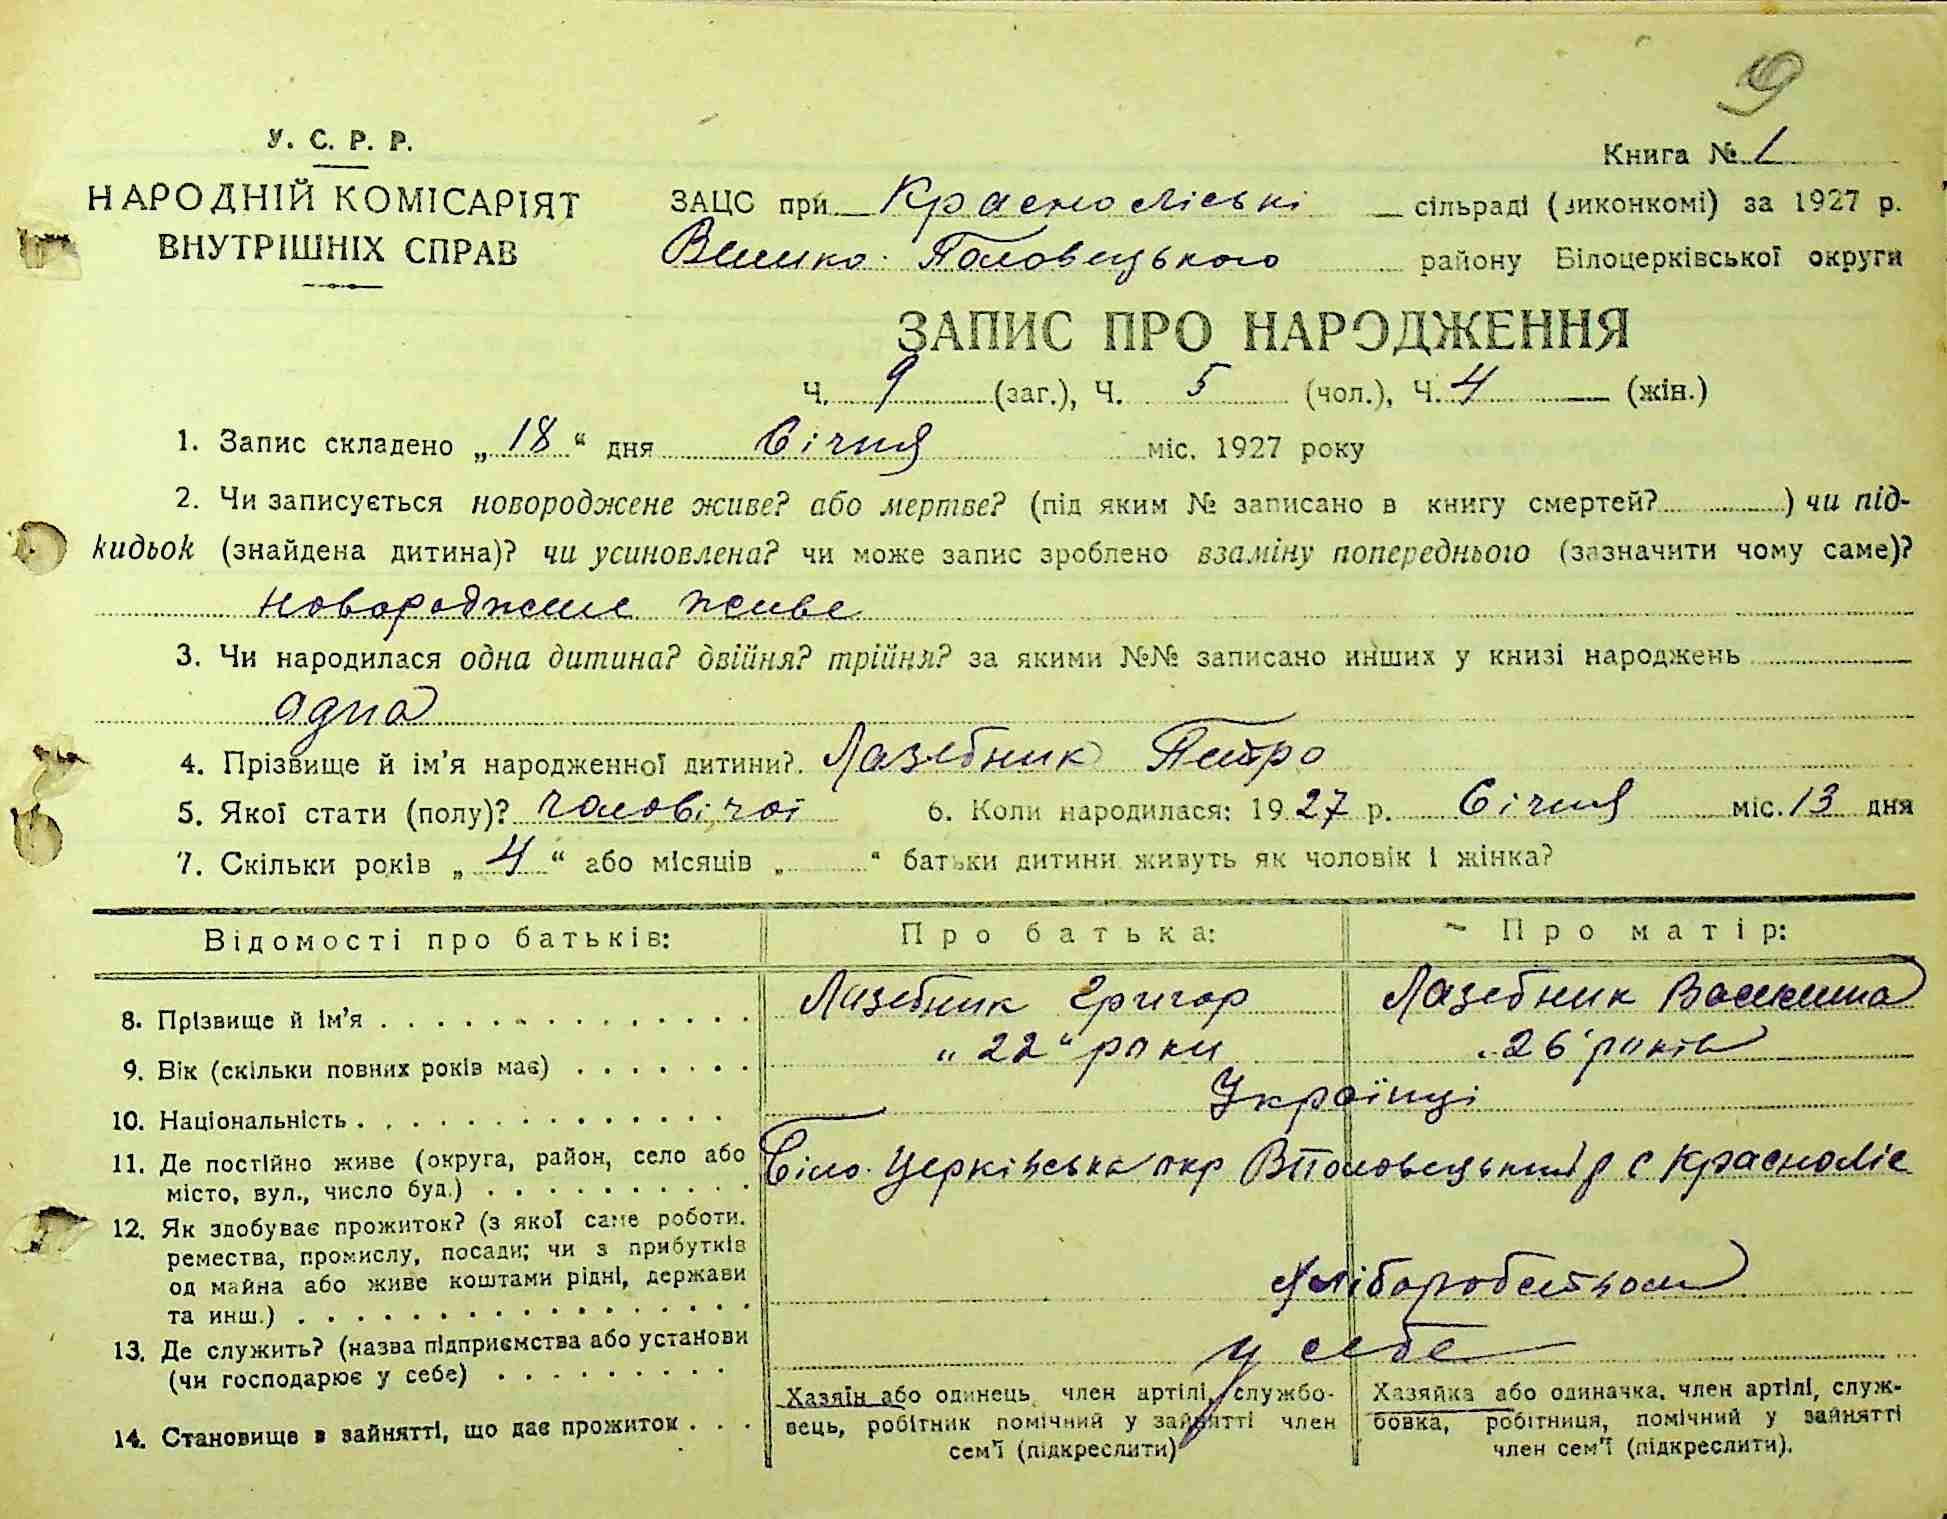 9
У. С. Р. Р.
НАРОДНІЙ КОМІСАРІЯТ
ВНУТРІШНІХ СПРАВ
Книга № 1
ЗАЦС при Красноліські сільраді (виконкомі) за 1927 р.
Велико-Половецького району Білоцерківської округи
ЗАПИС ПРО НАРОДЖЕННЯ
Ч. 9 (заг.), Ч. 5 (чол.), Ч. 4 (жін.)
1. Запис складено „18“ дня Січня міс. 1927 року
2. Чи записується новороджене живе? або мертве? (під яким № записано в книгу смертей? ) чи під-
кидьок (знайдена дитина)? чи усиновлена? чи може запис зроблено взаміну попереднього (зазначити чому саме)?
новороджене живе
3. Чи народилася одна дитина? двійня? трійня? за якими №№ записано инших у книзі народжень
одна
4. Прізвище й ім'я народженної дитини? Лазебник Петро
5. Якої стати (полу)? чоловічої 6. Коли народилася: 1927 р. Січня міс. 13 дня
7. Скільки років „4“ або місяців „ “ батьки дитини живуть як чоловік і жінка?
Відомості про батьків: Про батька: Про матір:
8. Прізвище й ім'я Лазебник Григор Лазебник
9. Вік (скільки повних років має) „22“ роки „26“ років
10. Національність Українці
11. Де постійно живе (округа, район, село або
місто, вул., число буд.) Біло-Церківська окр ВПоловецький р с Красноліс
12. Як здобуває прожиток? (з якої саме роботи.
ремества, промислу, посади; чи з прибутків
од майна або живе коштами рідні, держави
та инш.) Хліборобством
13. Де служить? (назва підприємства або установи
(чи господарює у себе) у себе
14. Становище в зайнятті, що дає прожиток
Хазяїн або одинець, член артілі, службо-
вець, робітник помічний у зайнятті член
сем'ї (підкреслити)
Хазяйка або одиначка, член артілі, служ-
бовка, робітниця, помічний у зайнятті
член сем'ї (підкреслити).